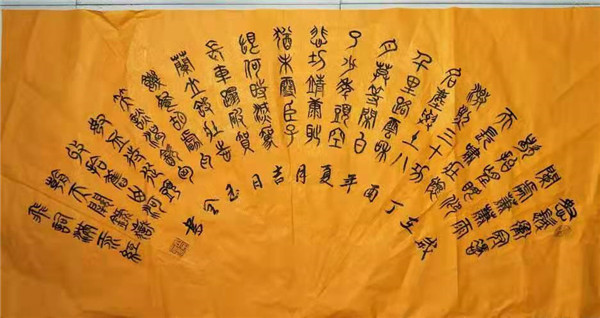 怒髮衝冠憑
闌處瀟瀟雨
歇抬望眼仰
天長嘯壯懷
激烈三十功
名塵與土八
千里路雲和
月莫等閑白
了少年頭空
悲切靖康恥
猶未雪臣子
恨何時滅駕
長車踏破賀
蘭山缺壯志
饑餐胡虜肉
笑談渴飲匈
奴血待從頭
收拾舊山河
朝天闕
詞滿江紅
歲在丁酉年夏月吉日
書